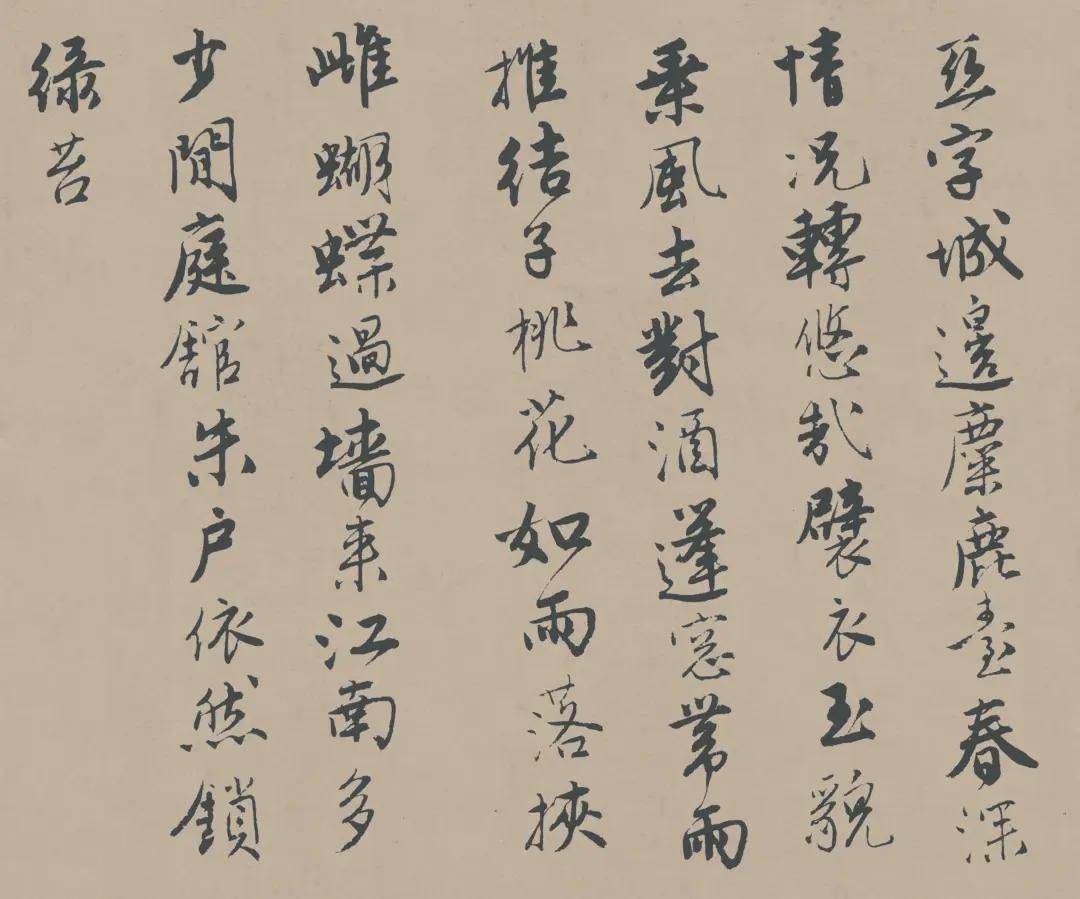 亞字城邊麋鹿臺春深
情況轉悠哉襞衣玉貌
乘風去對酒蓬窓帶雨
推結子桃花如雨落挾
雌蝴蝶過墻來江南多
少閒庭舘朱户依然鎖
緑苔